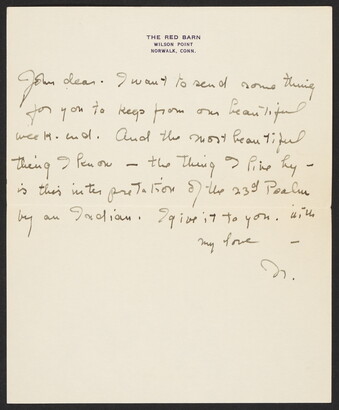 THE RED BARN
WILSON POINT
NORWALK, CONN.
John dear. I want to send some thing
for you to keep from our beautiful
week-end. And the most beautiful
thing I know — the thing I live by —
is this interpretation of the 23d Psalm
by an Indian. I give it to you. With
my love —
M.